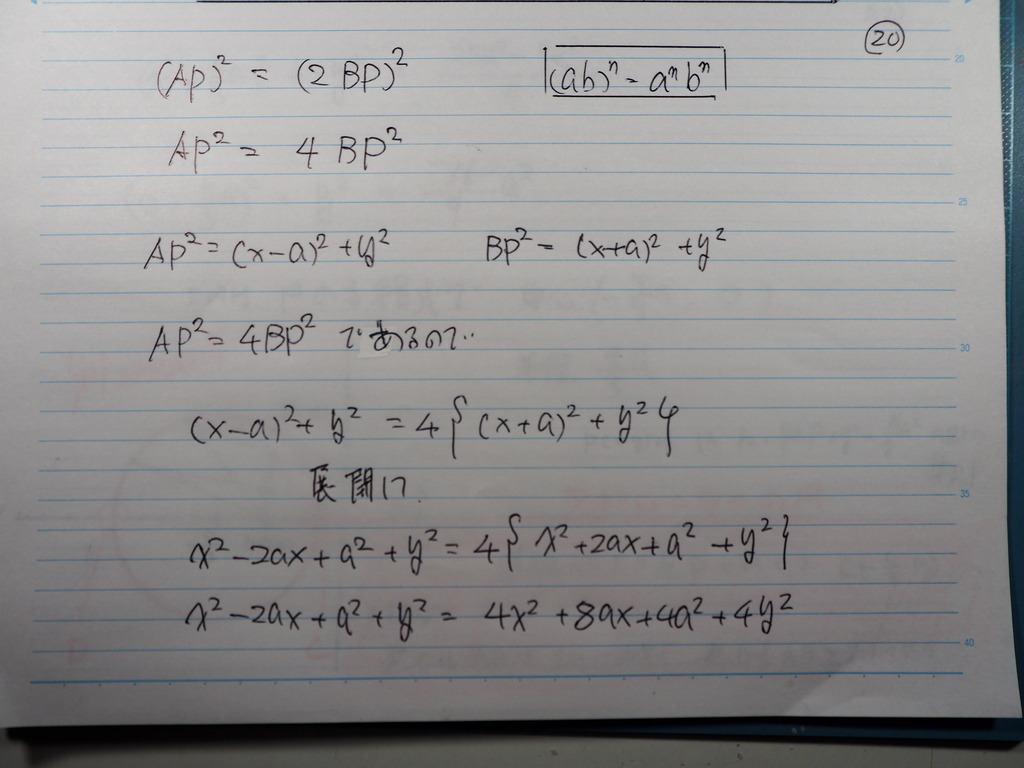 ⑳
(AP)² = (2BP)² (ab)ⁿ = aⁿbⁿ
AP² = 4BP²
AP² = (x-a)² + y² BP² = (x+a)² + y²
AP² = 4BP² であるので‥
(x-a)² + y² = 4{(x+a)² + y²}
展開して
x² - 2ax + a² + y² = 4{x² + 2ax + a² + y²}
x² - 2ax + a² + y² = 4x² + 8ax + 4a² + 4y²
20
25
30
35
40